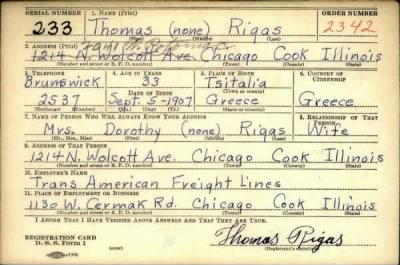 SERIAL NUMBER 1. NAME (Print) ORDER NUMBER
233 Thomas (none) Rigas 2342
(First) (Middle) (Last)
2. ADDRESS (Print)
1214 N. Wolcott Ave. Chicago Cook Illinois
(Number and street or R. F. D. number) (Town) (County) (State)
3. TELEPHONE 4. AGE IN YEARS 5. PLACE OF BIRTH 6. COUNTRY OF CITIZENSHIP
Brunswick 33 Tsitalia
DATE OF BIRTH (Town or county)
2537 Sept. 5-1907 Greece Greece
(Exchange) (No.) (Mo.) (Day) (Yr.) (State or country)
7. NAME OF PERSON WHO WILL ALWAYS KNOW YOUR ADDRESS 8. RELATIONSHIP OF THAT PERSON
Mrs. Dorothy (none) Rigas Wife
(Mr., Mrs., Miss) (First) (Middle) (Last)
9. ADDRESS OF THAT PERSON
1214 N. Wolcott Ave. Chicago Cook Illinois
(Number and street or R. F. D. number) (Town) (County) (State)
10. EMPLOYER'S NAME
Trans American Freight Lines
11. PLACE OF EMPLOYMENT OR BUSINESS
1130 W. Cermak Rd. Chicago Cook Illinois
(Number and street or R. F. D. number) (Town) (County) (State)
I AFFIRM THAT I HAVE VERIFIED ABOVE ANSWERS AND THAT THEY ARE TRUE.
REGISTRATION CARD
D. S. S. Form 1
Thomas Rigas
(Registrant's signature)